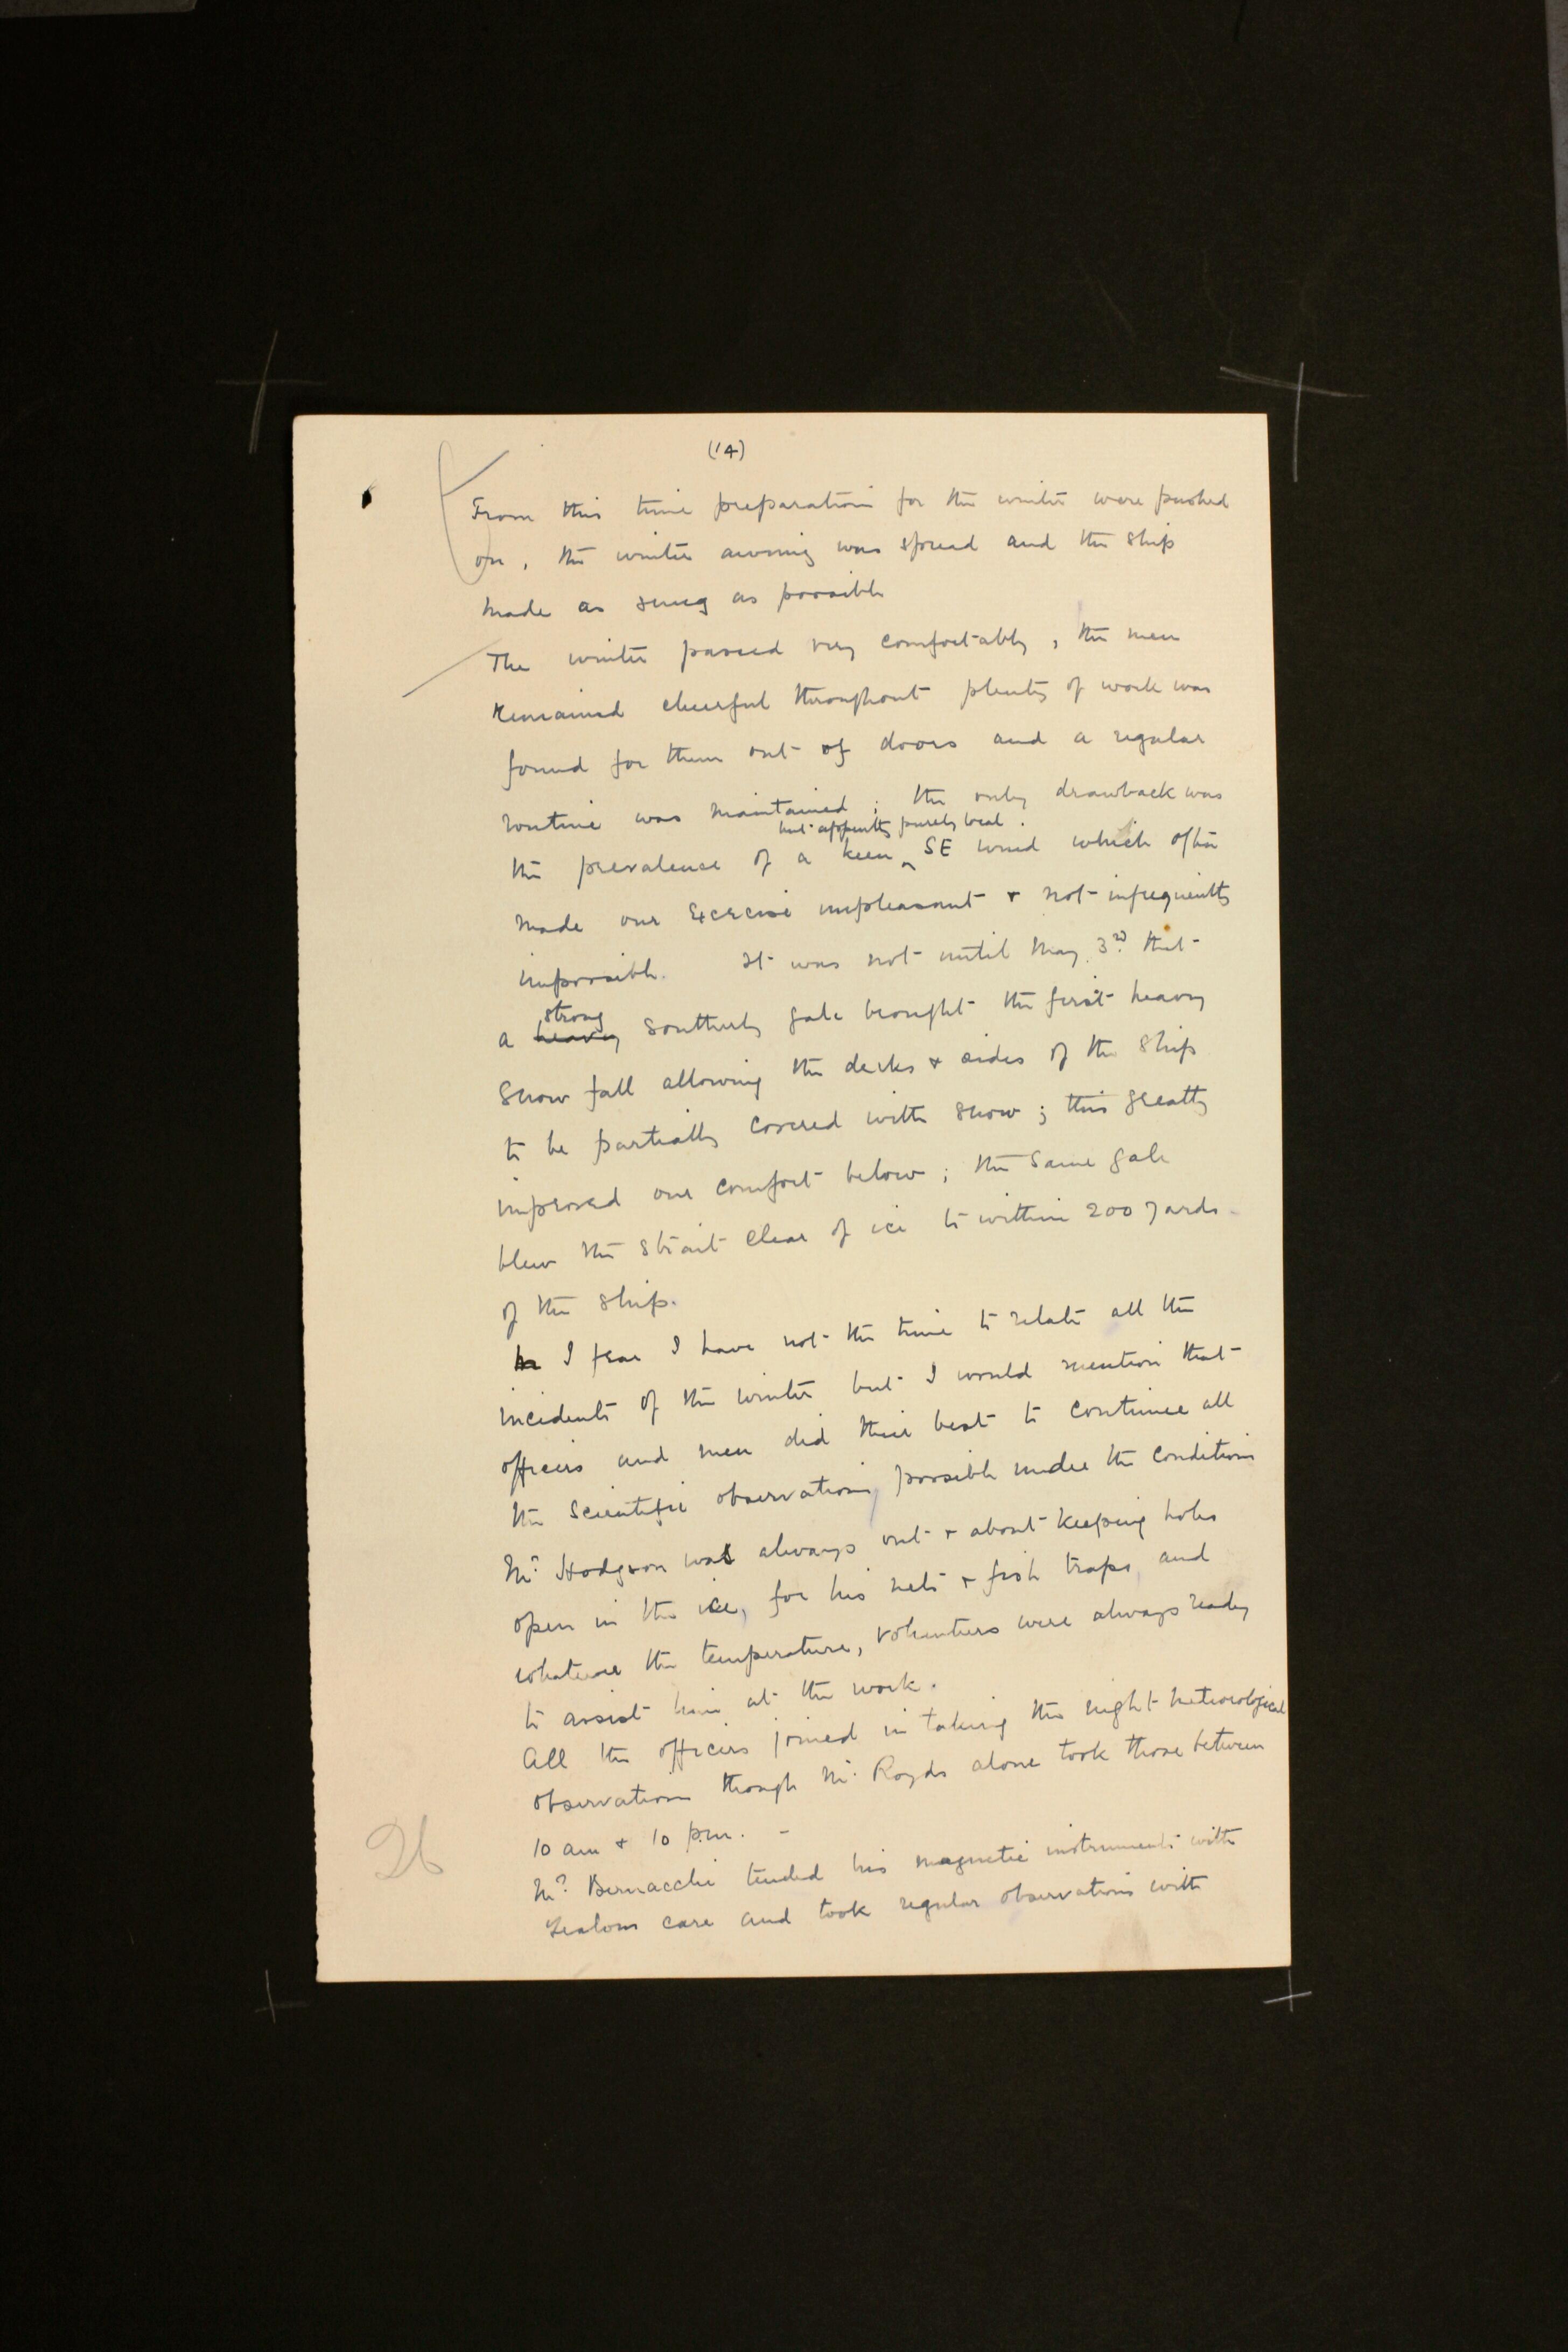 (14)
From this time preparation for the winter were pushed
on, the winter awning was spread and the ship
made as snug as possible
The winter passed very comfortably, the men
remained cheerful throughout plenty of work was
found for them out of doors and a regular
routine was maintained; the only drawback was
but apparently purely local.
the prevalence of a keen ‸ SE wind which often
made our exercise unpleasant & not infrequently
impossible. It was not until May 3rd that
strong
a heavy southerly gale brought the first heavy
snow fall allowing the decks & sides of the ship
to be partially covered with snow; this greatly
improved our comfort below; the same gale
blew the strait clear of ice to within 200 yards
of the ship.
I fear I have not the time to relate all the
incidents of the winter but I would mention that
officers and men did their best to continue all
the scientific observations possible under the conditions
Mr Hodgson was always out & about keeping holes
open in the ice, for his nets & fish traps, and
whatever the temperature, volunteers were always ready
to assist him at the work.
All the officers joined in taking the night meteorological
observations though Mr Royds alone took those between
10 am & 10 p.m. -
Mr Bernacchi tended his magnetic instruments with
zealous care and took regular observations with
26